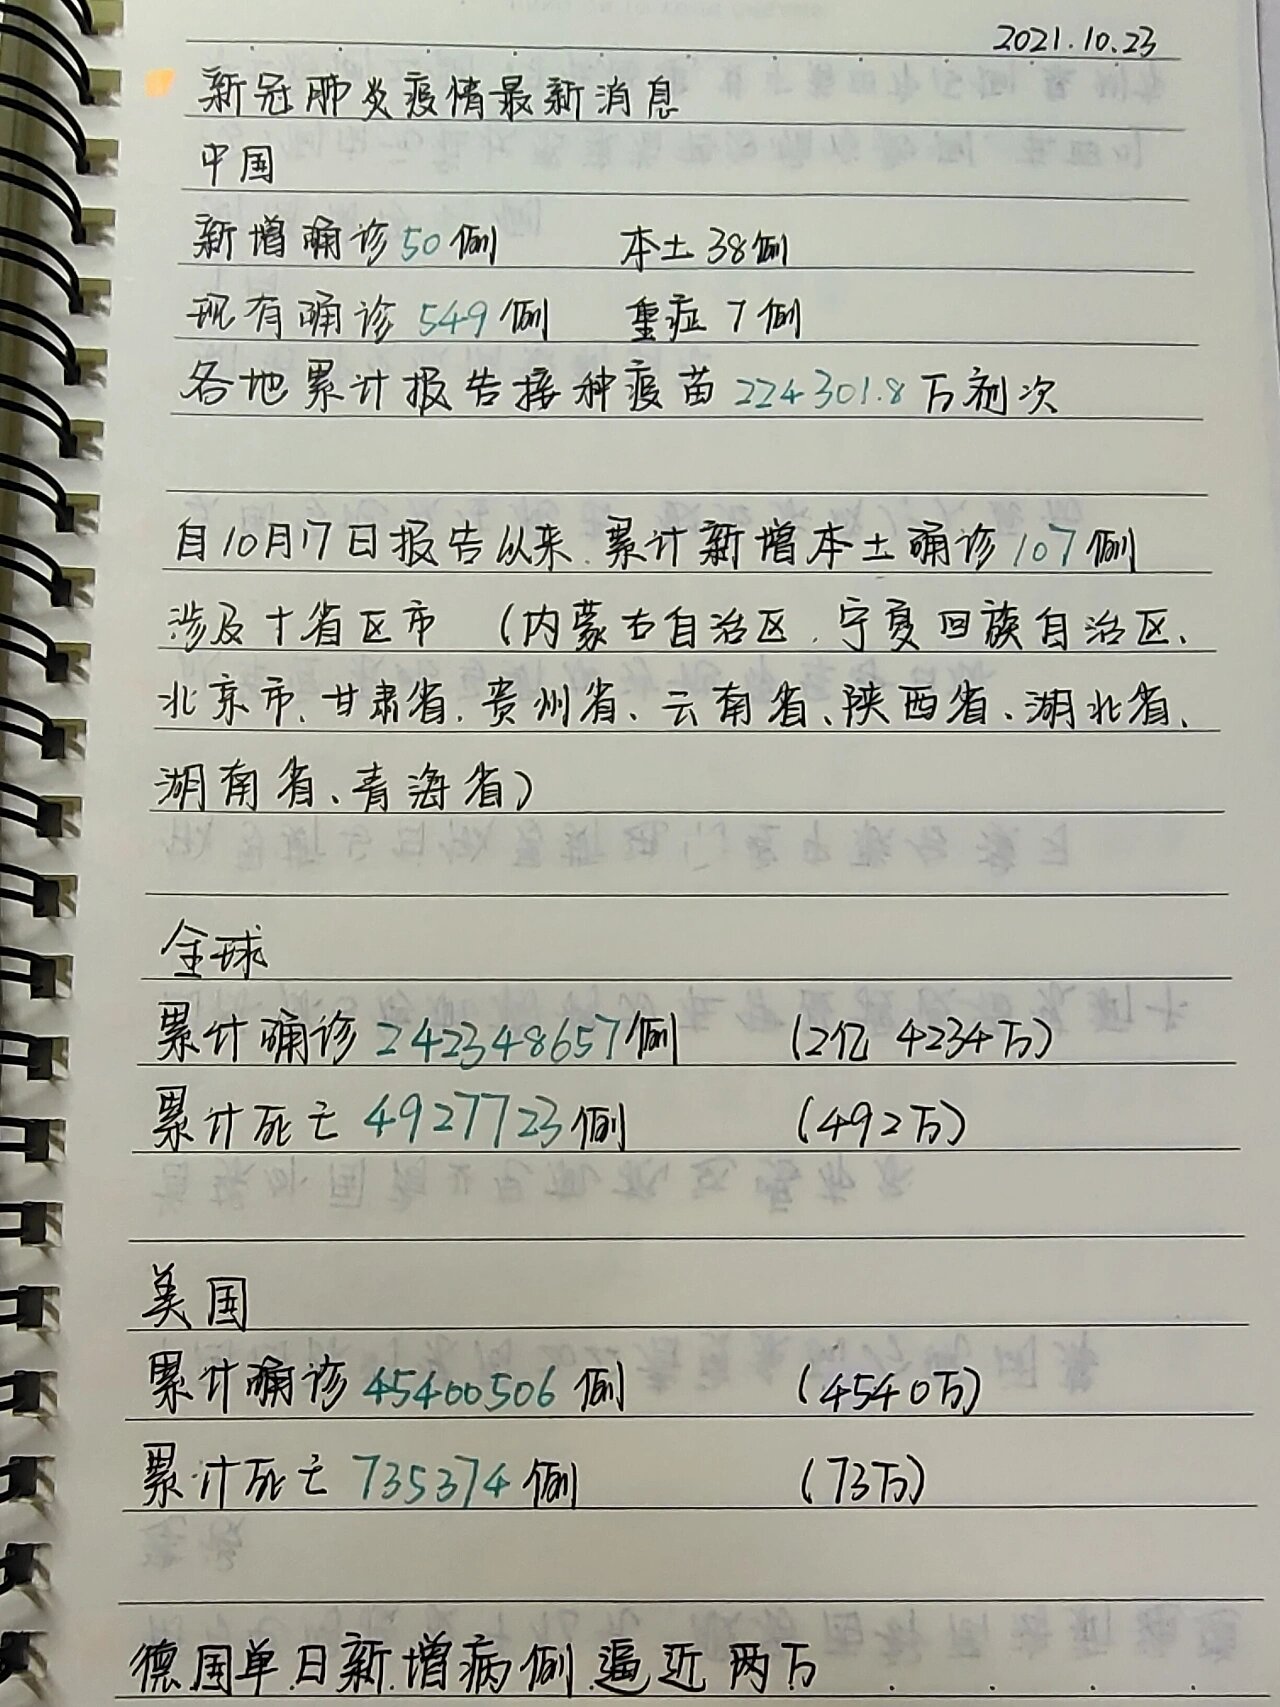 2021.10.23
新冠肺炎疫情最新消息
中国
新增确诊50例 本土38例
现有确诊549例 重症7例
各地累计报告接种疫苗224301.8万剂次
自10月17日报告以来.累计新增本土确诊107例
涉及十省区市 (内蒙古自治区.宁夏回族自治区、
北京市、甘肃省.贵州省、云南省、陕西省、湖北省、
湖南省、青海省)
全球
累计确诊242348657例 (2亿4234万)
累计死亡4927723例 (492万)
美国
累计确诊45400506例 (4540万)
累计死亡735374例 (73万)
德国单日新增病例逼近两万